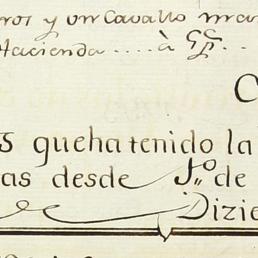 ros y un Cavallo mar
Hacienda .... à
C
s que ha tenido la
as desde J.º de
de Dizie